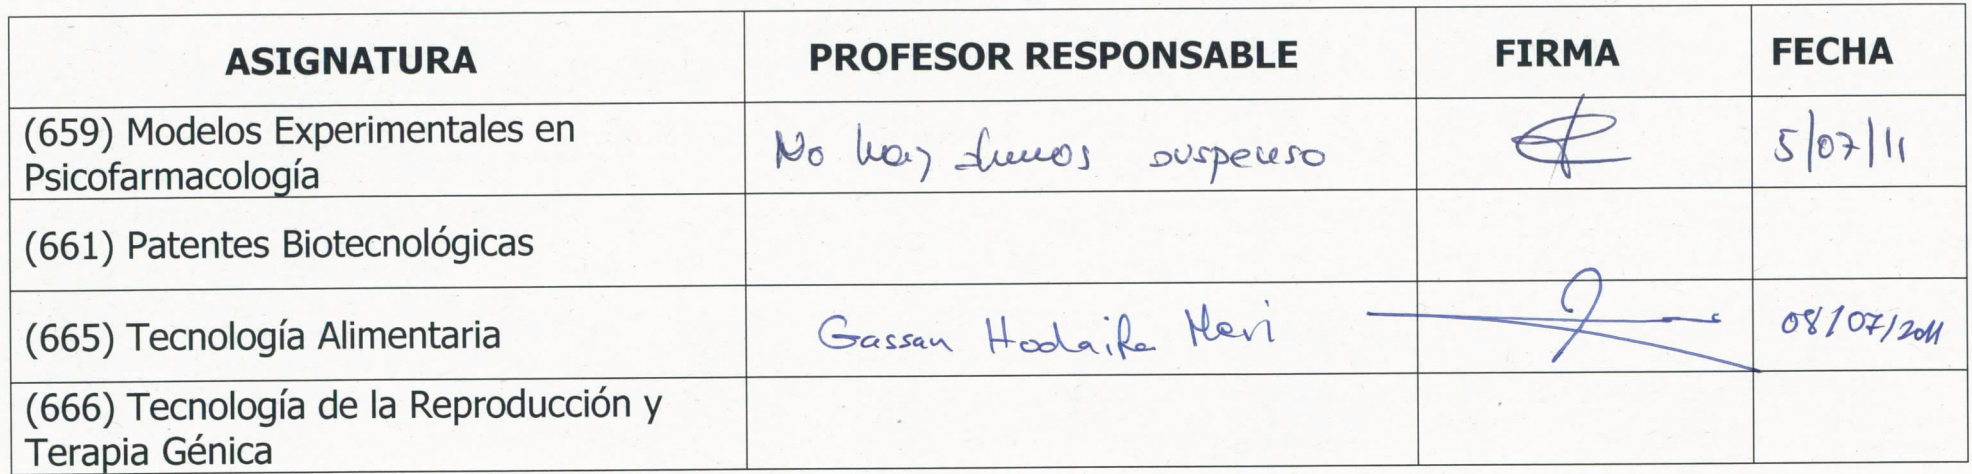 ASIGNATURA PROFESOR RESPONSABLE FIRMA FECHA
(659) Modelos Experimentales en
Psicofarmacología
No hay suspenso 5/07/11
(661) Patentes Biotecnológicas
(665) Tecnología Alimentaria Gassan Hodaifa Meri 08/07/2011
(666) Tecnología de la Reproducción y
Terapia Génica